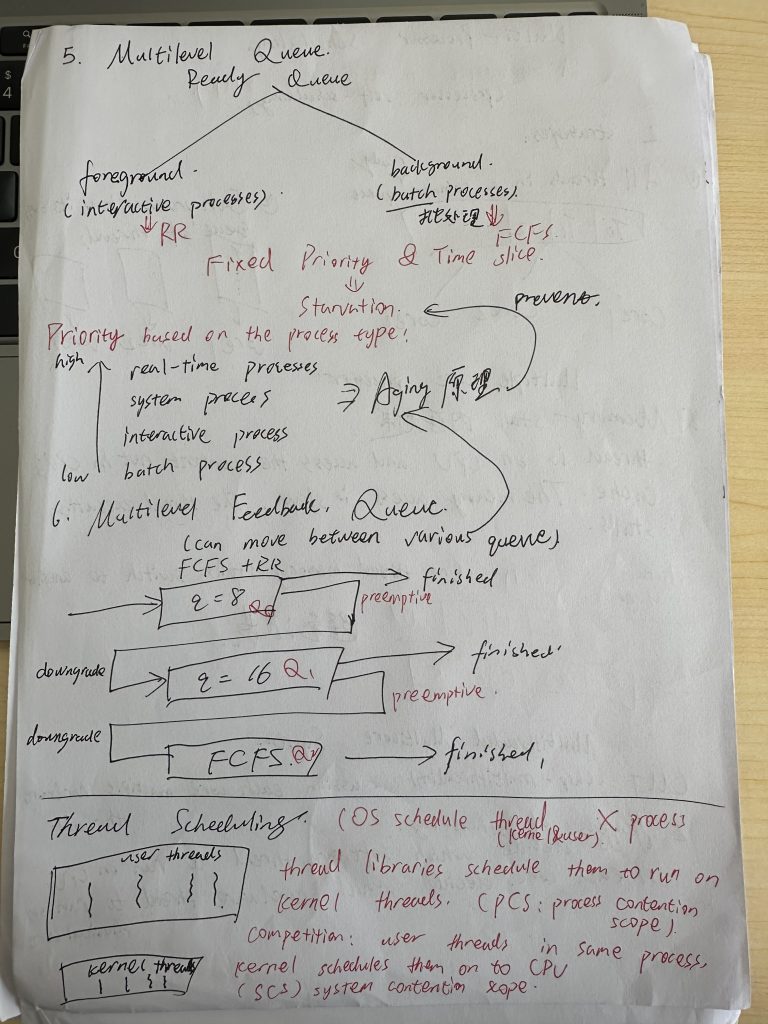 5. Multilevel Queue.
Ready Queue
foreground.
(interactive processes).
RR
background.
(batch processes).
批处理
FCFS.
Fixed Priority & Time slice.
Starvation.
prevent.
Priority based on the process type:
high
real-time processes
system process
⇒ Aging 原理.
interactive process
low batch process
6. Multilevel Feedback. Queue.
(can move between various queue)
FCFS + RR
q = 8 Q0
finished
preemptive
downgrade
q = 16 Q1
finished.
preemptive.
downgrade
FCFS. Q2
finished.
Thread Scheduling. (OS schedule thread X process
(kernel&user).
user threads
thread libraries schedule them to run on
kernel threads. (PCS: process contention
scope).
competition: user threads in same process.
kernel threads
kernel schedules them on to CPU
(SCS) system contention scope.